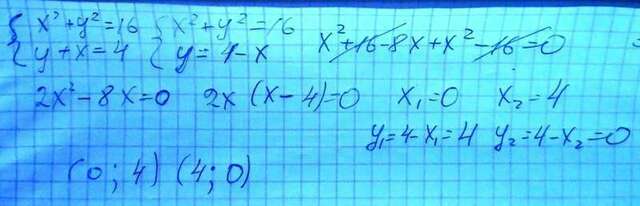 {x²+y²=16 {x²+y²=16
{y+x=4 {y=4-x x²+16-8x+x²-16=0
2x²-8x=0 2x(x-4)=0 x₁=0 x₂=4
y₁=4-x₁=4 y₂=4-x₂=0
(0;4) (4;0)